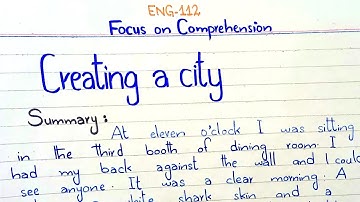 ENG-112
Focus on Comprehension
Creating a city
Summary:
At eleven o'clock I was sitting
in the third booth of dining room. I
had my back against the wall and I could
see anyone. It was a clear morning. A
shark skin and a